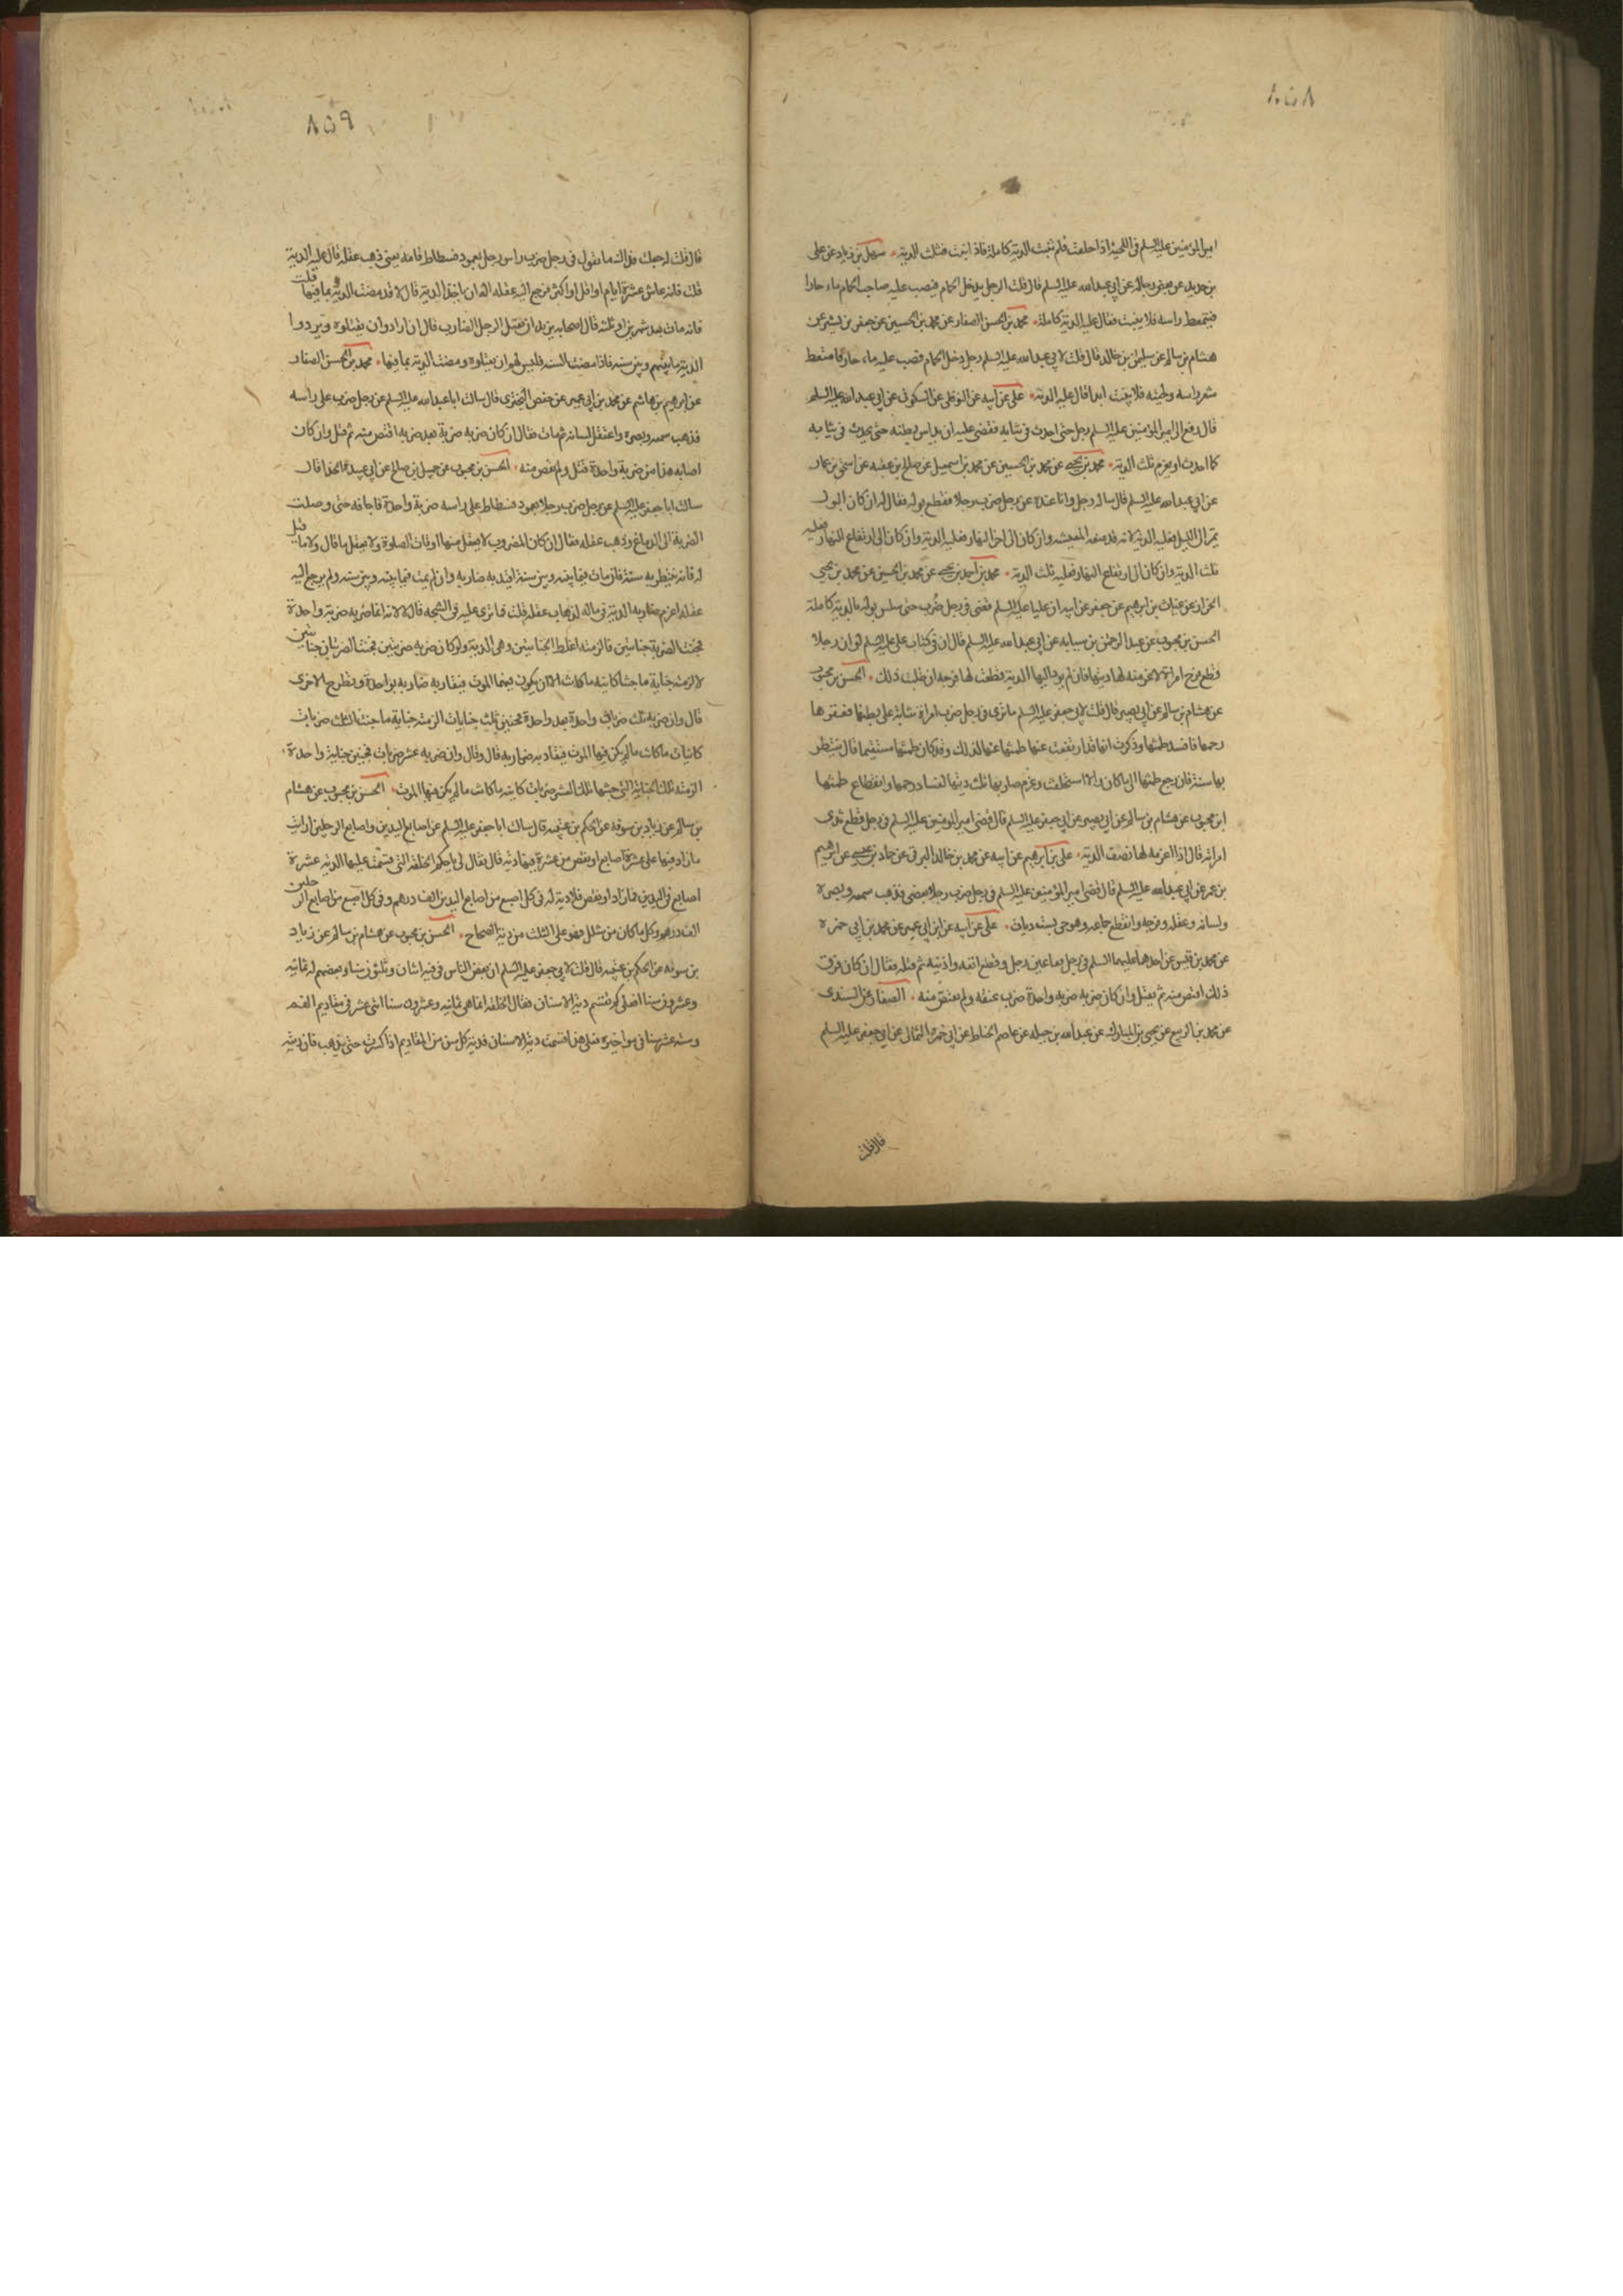 ٨٥٨
امير المؤمنين عليه السلم في اللحية اذا حلقت فلم تنبت الدية كاملة فاذا نبتت فثلث الدية ٠ سهل بن زياد عن علي
بن حديد عن بعض رجاله عن ابي عبدالله عليه السلم قال قلت الرجل يدخل الحمام فيصب عليه صاحب الحمام ماء حارا
فيتمعط راسه فلا ينبت فقال عليه الدية كاملة ٠ محمد بن الحسن الصفار عن محمد بن الحسين عن جعفر بن بشير عن
هشام بن سالم عن سليمن بن خالد قال قلت لابي عبدالله عليه السلم رجل دخل الحمام فصب عليه ماء حار فامتعط
شعر راسه ولحيته فلا ينبت ابدا قال عليه الدية ٠ علي عن ابيه عن النوفلي عن السكوني عن ابي عبدالله عليه السلم
قال رفع الى امير المؤمنين عليه السلم رجل حتى احدث في ثيابه فقضى عليه ان يداس بطنه حتى يحدث في ثيابه
كما احدث او يغرم ثلث الدية ٠ محمد بن يحيى عن محمد بن الحسين عن محمد بن اسمعيل عن صالح بن عقبه عن اسحق بن عمار
عن ابي عبدالله عليه السلم قال ساله رجل وانا عنده عن رجل ضرب رجلا فقطع بوله فقال له ان كان البول
يمر الى الليل فعليه الدية لانه قد منعه المعيشه وان كان الى اخر النهار فعليه الدية وان كان الى ارتفاع النهار فعليه
ثلث الدية وان كان الى ارتفاع النهار فعليه ثلث الدية ٠ محمد بن احمد بن يحيى عن محمد بن الحسين عن محمد بن يحيى
الخزاز عن غياث بن ابرهيم عن جعفر عن ابيه ان عليا عليه السلم قضى في رجل ضرب حتى سلس بوله بالدية كاملة
الحسن بن محبوب عن عبد الرحمن بن سيابه عن ابي عبدالله عليه السلم قال ان في كتاب علي عليه السلم لو ان رجلا
قطع فرج امراة لاغرمنه لها ديتها فان لم يود اليها الدية قطعت لها فرجه ان طلبت ذلك ٠ الحسن بن محبوب
عن هشام بن سالم عن ابي بصير قال قلت لابي جعفر عليه السلم ما ترى في رجل ضرب امراة شابة على بطنها فعقر ها
رحمها فافسد طمثها وذكرت انها قد ارتفعت عنها طمثها عنها لذلك وقد كان طمثها مستقيما قال ينتظر
بها سنة فان رجع طمثها الى ما كان والا استحلفت وغرم ضاربها ثلث ديتها لفساد رحمها وانقطاع طمثها
ابن محبوب عن هشام بن سالم عن ابي بصير عن ابي جعفر عليه السلم قال قضى امير المؤمنين عليه السلم في رجل قطع ثدي
امراته قال اذا اغرمه لها نصف الدية ٠ علي بن ابرهيم عن ابيه عن محمد بن خالد البرقي عن حماد بن عيسى عن ابرهيم
بن عمر عن ابي عبدالله عليه السلم قال قضى امير المؤمنين عليه السلم في رجل ضرب رجلا بعصى فذهب سمعه وبصره
ولسانه وعقله وفرجه وانقطع جماعه وهو حي بستة ديات ٠ علي عن ابيه عن ابن ابي عمير عن محمد بن ابي حمزه
عن محمد بن قيس عن احدهما عليهما السلم في رجل فقا عين رجل وقطع انفه واذنيه ثم قتله فقال ان كان فرق
ذلك اقتص منه ثم يقتل وان كان ضربه ضربه واحدة ضرب عنقه ولم يقتص منه ٠ الصفار عن السندي
عن محمد بن الربيع عن يحيى بن المبارك عن عبدالله بن جبله عن عاصم الحناط عن ابي حمزة الثمالي عن ابي جعفر عليه السلم
قال قلت
٨٥٩
قال قلت له جعلت فداك ما تقول في رجل ضرب راس رجل بعمود فسطاط فامه يعني ذهب عقله قال عليه الدية
قلت فانه عاش عشرة ايام او اقل او اكثر فرجع اليه عقله اله ان ياخذ الدية قال لا قد مضت الدية بما فيها قلت
فانه مات بعد شهرين او ثلثه قال اصحابه نريد ان نقتل الرجل الضارب قال ان ارادوا ان يقتلوه ويردوا
الدية ما بينهم وبين سنه فاذا مضت السنه فليس لهم ان يقتلوه ومضت الدية بما فيها ٠ محمد بن الحسن الصفار
عن ابرهيم بن هاشم عن محمد بن ابي عمير عن حفص البختري قال سالت ابا عبدالله عليه السلم عن رجل ضرب على راسه
فذهب سمعه وبصره واعتقل لسانه ثم مات فقال ان كان ضربه ضربة بعد ضربه اقتص منه ثم قتل وان كان
اصابه هذا من ضربة واحدة قتل ولم يقص منه ٠ الحسن بن محبوب عن جميل بن صالح عن ابي عبيدة الحذا قال
سالت ابا جعفر عليه السلم عن رجل ضرب رجلا بعمود فسطاط على راسه ضربة واحدة فاجافه حتى وصلت
الضربة الى الدماغ وذهب عقله فقال ان كان المضروب لا يعقل منها اوقات الصلوة ولا يعقل ما قال ولا ما قيل
له فانه ينتظر به سنة فان مات فيما بينه وبين سنة اقيد به ضاربه وان لم يمت فيما بينه وبين سنه ولم يرجع اليه
عقله اغرم ضاربه الدية في ماله لذهاب عقله قلت فما ترى عليه في الشجه قال لا لانه انما ضربه ضربة واحدة
فجنت الضربة جنايتين فالزمته اغلظ الجنايتين وهي الدية ولو كان ضربه ضربتين فجنت الضربتان جنايتين
لالزمته جناية ما جنتا كاينه ما كانت الا ان يكون فيهما الموت فيقاد به ضاربه بواحدة وتطرح الاخرى
قال وان ضربه ثلث ضربات واحدة بعد واحدة فجنين ثلث جنايات الزمته جناية ما جنت الثلث ضربات
كاينات ما كانت ما لم يكن فيها الموت فيقاد به ضاربه قال وقال وان ضربه عشر ضربات فجنين جناية واحدة ٠
الزمته تلك الجناية التي جنتها تلك العشر ضربات كاينه ما كانت ما لم يكن فيها الموت ٠ الحسن بن محبوب عن هشام
بن سالم عن زياد بن سوقه عن الحكم بن عتيبه قال سالت ابا جعفر عليه السلم عن اصابع اليدين واصابع الرجلين ارايت
ما زاد فيها على عشرة اصابع او نقص من عشرة فيها دية قال فقال لي يا حكم الخلقه التي قسمت عليها الدية عشرة
اصابع في اليدين فما زاد او نقص فلا دية له في كل اصبع من اصابع اليدين الف درهم وفي كل اصبع من اصابع الرجلين
الف درهم وكل ما كان من شلل فهو على الثلث من دية الصحاح ٠ الحسن بن محبوب عن هشام بن سالم عن زياد
بن سوقه عن الحكم بن عتيبه قال قلت لابي جعفر عليه السلم ان بعض الناس في فيه اثنان وثلثون سنا وبعضهم له ثمانيه
وعشرون سنا فعلى كم تقسم دية الاسنان فقال الخلقه انما هي ثمانيه وعشرون سنا اثنى عشر في مقاديم الفم
وسته عشر سنا في مواخيره فعلى هذا قسمت دية الاسنان فدية كل سن من المقاديم اذا كسرت حتى يذهب فان ديته